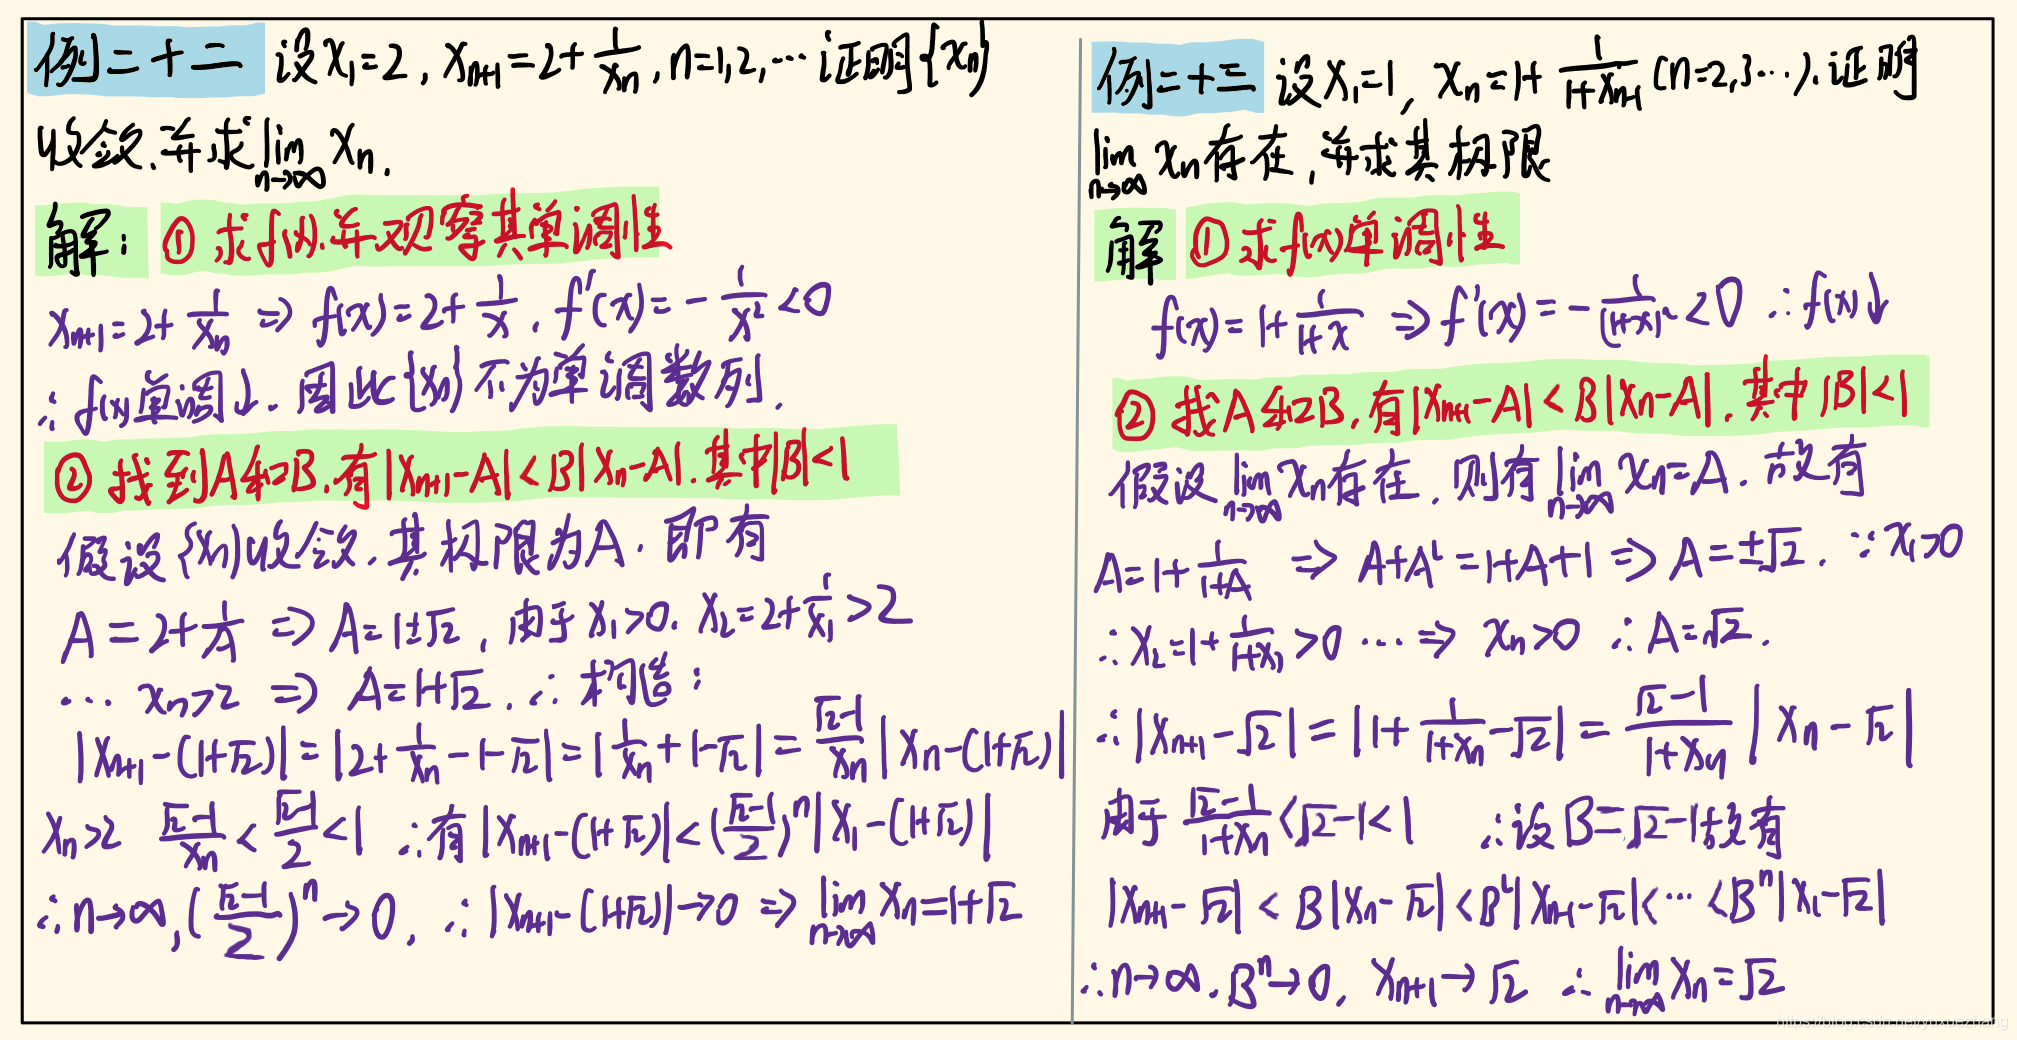 例二十二 设x₁=2, xₙ₊₁=2+1/xₙ, n=1,2,… 证明{xₙ}
收敛.并求lim(n→∞) xₙ.
解: ① 求f(x).并观察其单调性
xₙ₊₁=2+1/xₙ ⇒ f(x)=2+1/x, f'(x)=-1/x²<0
∴ f(x)单调↓. 因此{xₙ}不为单调数列.
② 找到A和B.有|xₙ₊₁-A|<B|xₙ-A|.其中|B|<1
假设{xₙ}收敛.其极限为A. 即有
A=2+1/A ⇒ A=1±√2, 由于x₁>0. x₂=2+1/x₁>2
… xₙ>2 ⇒ A=1+√2. ∴ 构造:
|xₙ₊₁-(1+√2)|=|2+1/xₙ-1-√2|=|1/xₙ+1-√2|=(√2-1)/xₙ|xₙ-(1+√2)|
xₙ>2 (√2-1)/xₙ<(√2-1)/2<1 ∴有|xₙ₊₁-(1+√2)|<((√2-1)/2)ⁿ|x₁-(1+√2)|
∴n→∞,((√2-1)/2)ⁿ→0, ∴|xₙ₊₁-(1+√2)|→0 ⇒ lim(n→∞) xₙ=1+√2
例二十三 设x₁=1, xₙ=1+1/(1+xₙ₋₁) (n=2,3…).证明
lim(n→∞) xₙ存在,并求其极限
解 ① 求f(x)单调性
f(x)=1+1/(1+x) ⇒ f'(x)=-1/(1+x)²<0 ∴f(x)↓
② 找A和B.有|xₙ₊₁-A|<B|xₙ-A|.其中|B|<1
假设lim(n→∞) xₙ存在. 则有lim(n→∞) xₙ=A. 故有
A=1+1/(1+A) ⇒ A+A²=1+A+1 ⇒ A=±√2. ∵x₁>0
∴x₂=1+1/(1+x₁)>0 … ⇒ xₙ>0 ∴A=√2.
∴|xₙ₊₁-√2|=|1+1/(1+xₙ)-√2|=(√2-1)/(1+xₙ)|xₙ-√2|
由于(√2-1)/(1+xₙ)<√2-1<1 ∴设B=√2-1故有
|xₙ₊₁-√2|<B|xₙ-√2|<B²|xₙ₋₁-√2|<…<Bⁿ|x₁-√2|
∴n→∞.Bⁿ→0, xₙ₊₁→√2 ∴lim(n→∞) xₙ=√2